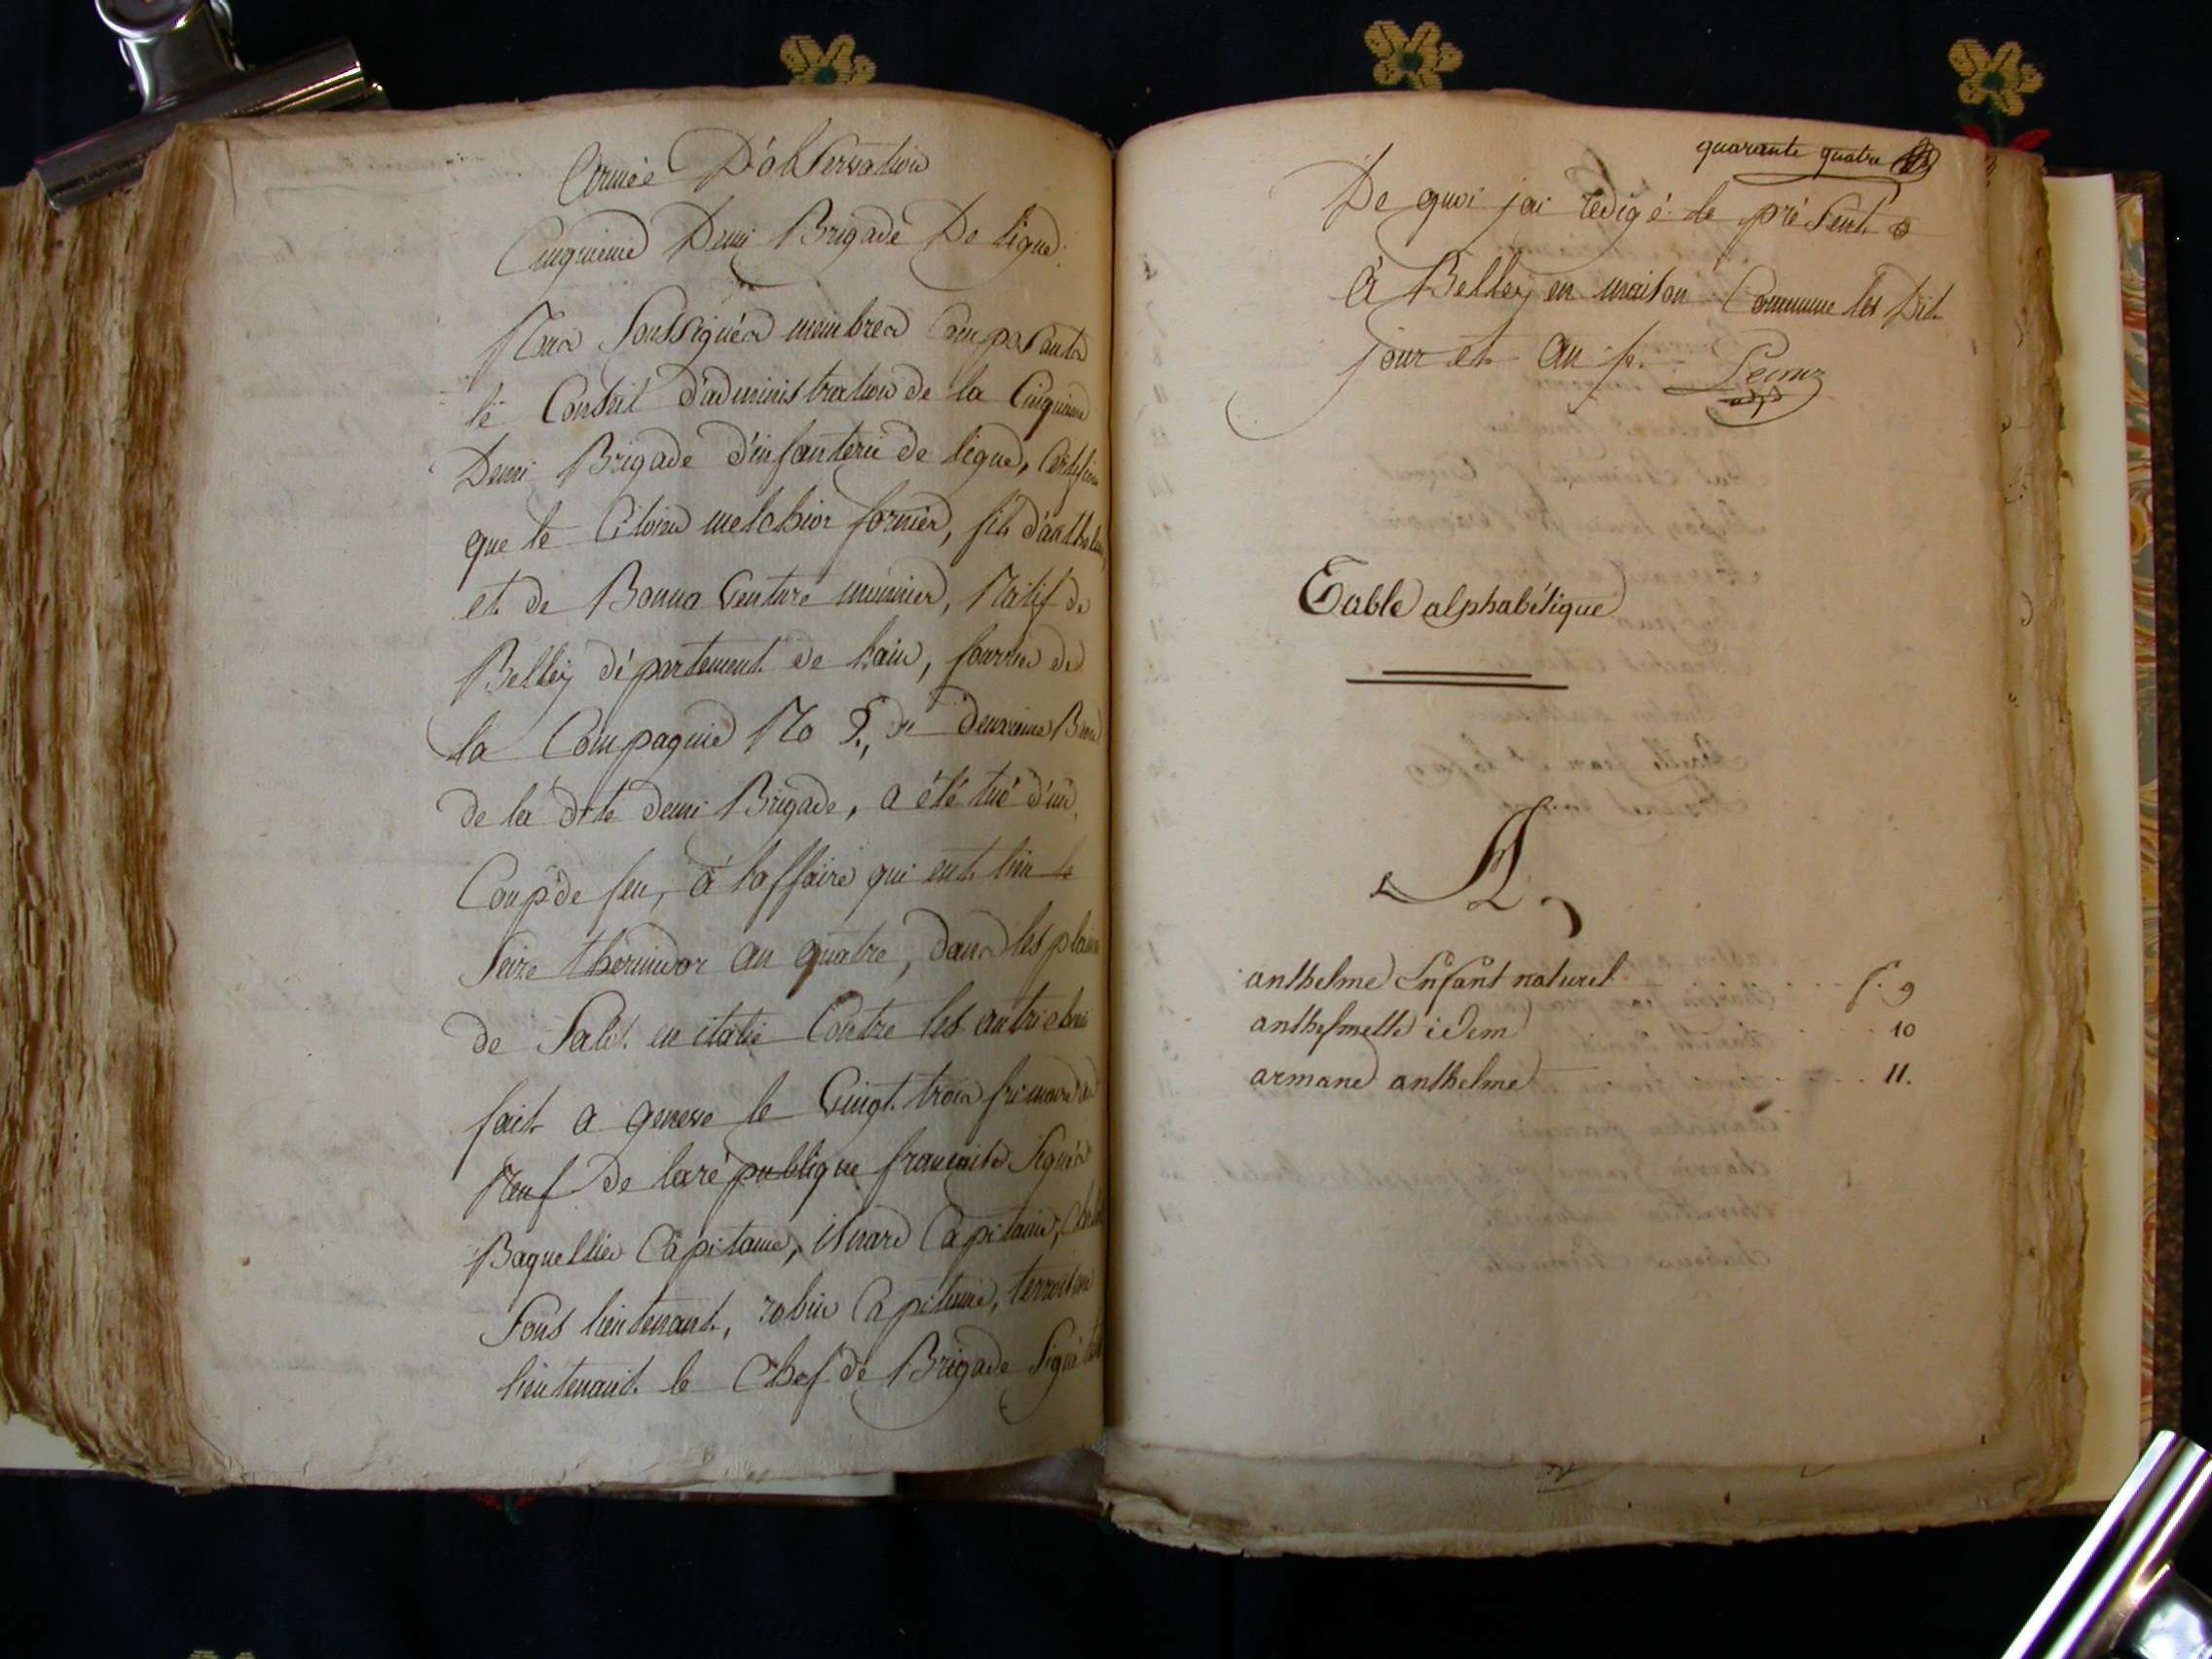 Armée D'obServation
Cinquieme Demi Brigade De ligne
Nous Soussignés membres Composants
le Conseil d'administration de la Cinquieme
Demi Brigade d'infanterie de ligne, Certifions
que le Citoien melchior fornier, fils d'anthelme
et de Bonna Venture monnier, Natif de
Belley département de lain, fourrier de
la Compagnie No 5., deuxieme
de la dite demi Brigade, a été tué d'un
Coup de feu, à laffaire qui eut lieu le
Seize thermidor an quatre, dans les plaines
de Salo en italie Contre les autrichiens
fait a geneve le Vingt trois frimaire an
Neuf de la république francaise Signés
Baquellier Capitaine, isnard Capitaine,
Sous lieutenant, robin Capitaine,
lieutenant le Chef de Brigade Signé
quarante quatre
De quoi jai redigé le préSent
à Belley en maison Commune les Dit
jour et an
Table alphabétique
A
anthelme Enfant naturel f. 9
anthelmette idem 10
armand anthelme 11.